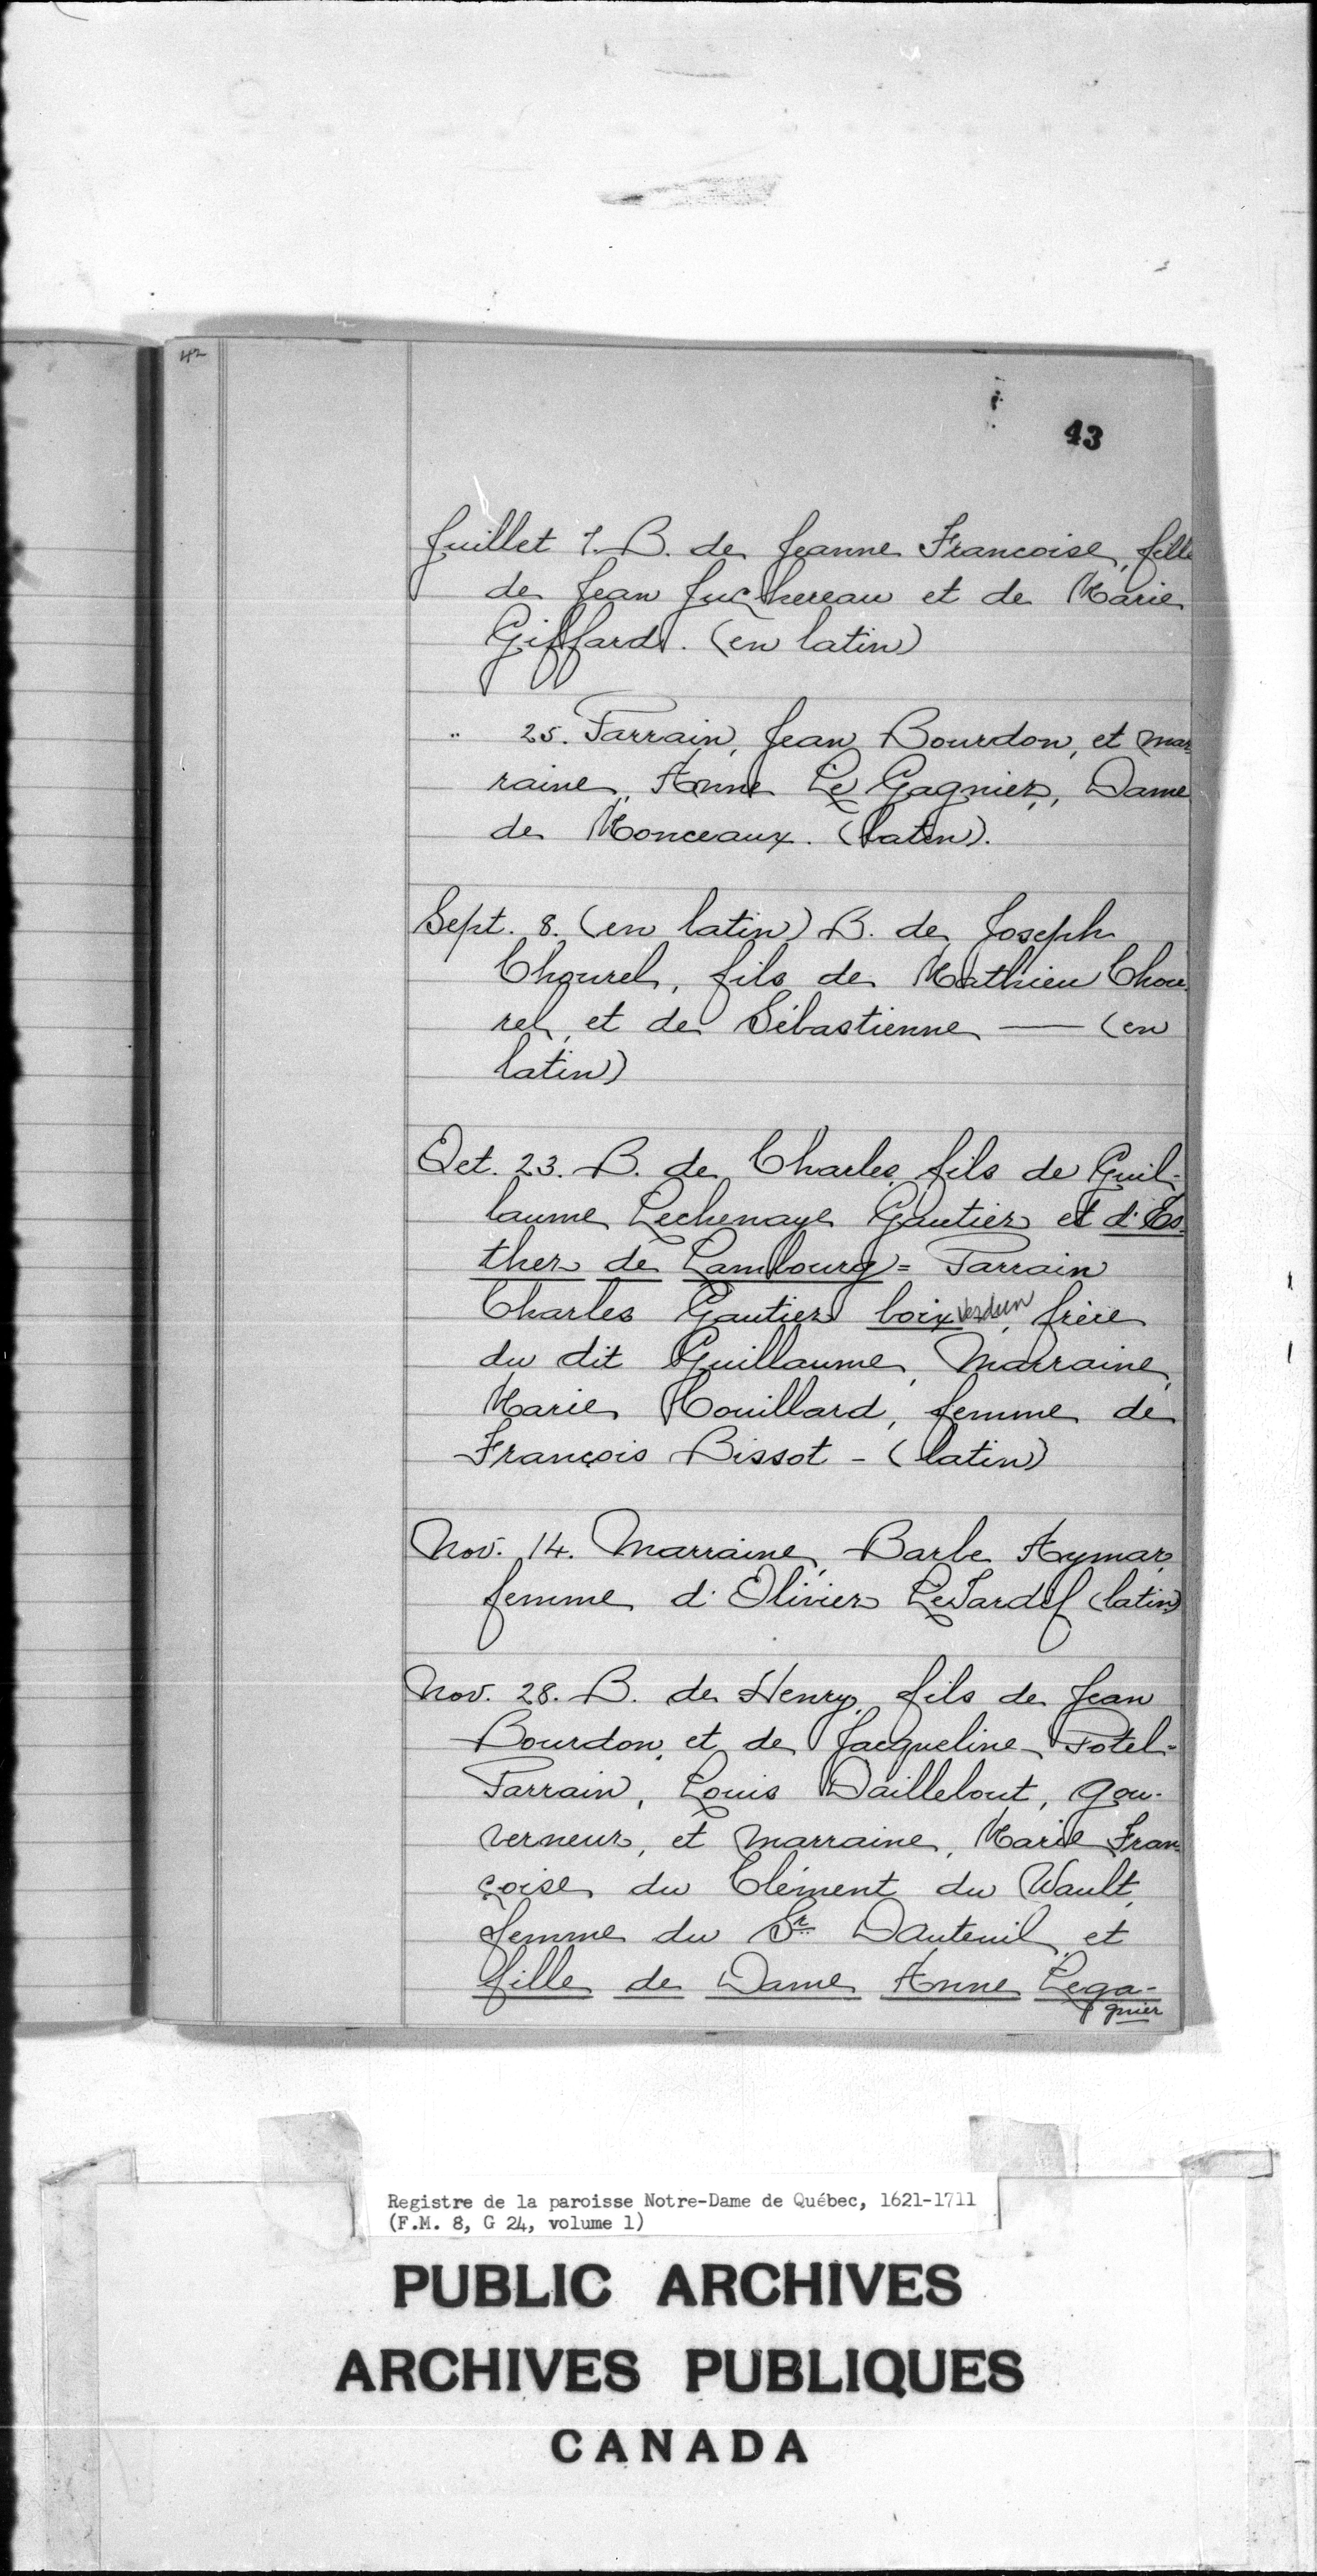 42
43
Juillet 1. B. de Jeanne Francoise, fille
de Jean Juchereau et de Marie
Giffard. (en latin)
" 25. Parrain, Jean Bourdon, et mar
raine, Anne Le Gagnier, Dame
de Monceaux. (latin).
Sept. 8. (en latin) B. de Joseph
Chourel, fils de Mathieu Chou
rel, et de Sébastienne — (en
latin)
Oct. 23. B. de Charles, fils de Guil-
laume Lechenaye Gautier et d'Es-
ther de Lambourg = Parrain
Charles Gautier boixverdun, frère
du dit Guillaume, Marraine,
Marie Couillard, femme de
François Bissot - (latin)
Nov. 14. Marraine, Barbe Aymar
femme d'Olivier LeTardif (latin)
Nov. 28. B. de Henry, fils de Jean
Bourdon, et de Jacqueline Potel-
Parrain, Louis Daillebout, gou-
verneur, et marraine, Marie Fran
çoise du Clément du Wault,
femme du Sr. Dauteuil, et
fille de Dame Anne Lega-
gnier
Registre de la paroisse Notre-Dame de Québec, 1621-1711
(F.M. 8, G 24, volume 1)
PUBLIC ARCHIVES
ARCHIVES PUBLIQUES
CANADA